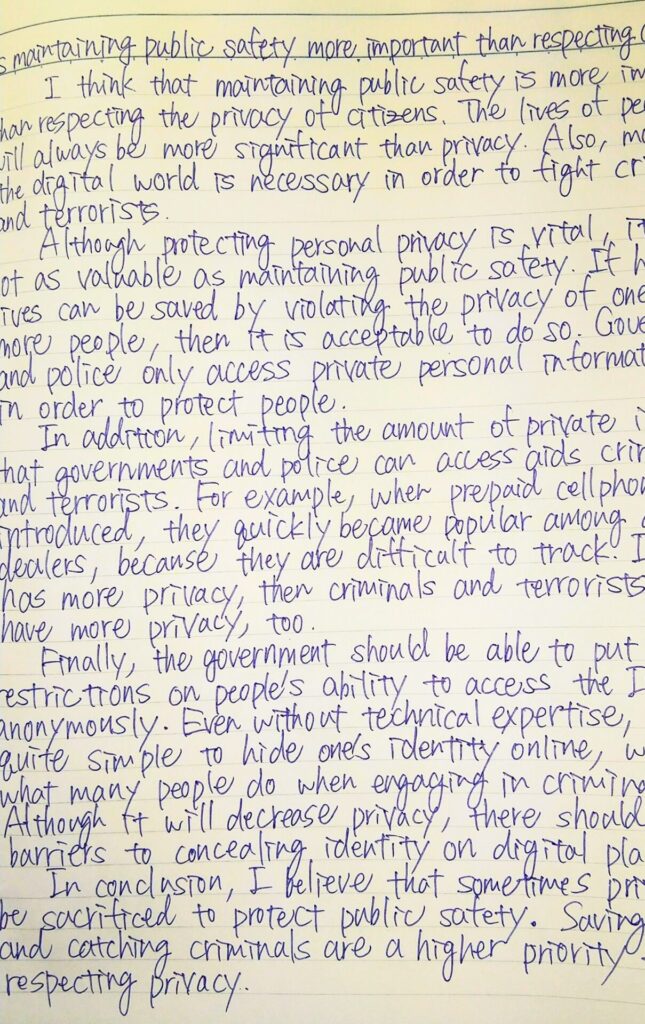 s maintaining public safety more important than respecting
I think that maintaining public safety is more im
han respecting the privacy of citizens. The lives of pe
ill always be more significant than privacy. Also, mo
the digital world is necessary in order to fight cri
and terrorists.
Although protecting personal privacy is vital, it
ot as valuable as maintaining public safety. If h
ives can be saved by violating the privacy of one
more people, then it is acceptable to do so. Gove
and police only access private personal informat
in order to protect people.
In addition, limiting the amount of private i
hat governments and police can access aids crim
and terrorists. For example, when prepaid cellpho
introduced, they quickly became popular among
dealers, because they are difficult to track. I
has more privacy, then criminals and terrorists
have more privacy, too.
Finally, the government should be able to put
restrictions on people's ability to access the I
anonymously. Even without technical expertise,
quite simple to hide one's identity online, w
what many people do when engaging in crimina
Although it will decrease privacy, there should
barriers to concealing identity on digital pla
In conclusion, I believe that sometimes pri
be sacrificed to protect public safety. Saving
and catching criminals are a higher priority
respecting privacy.